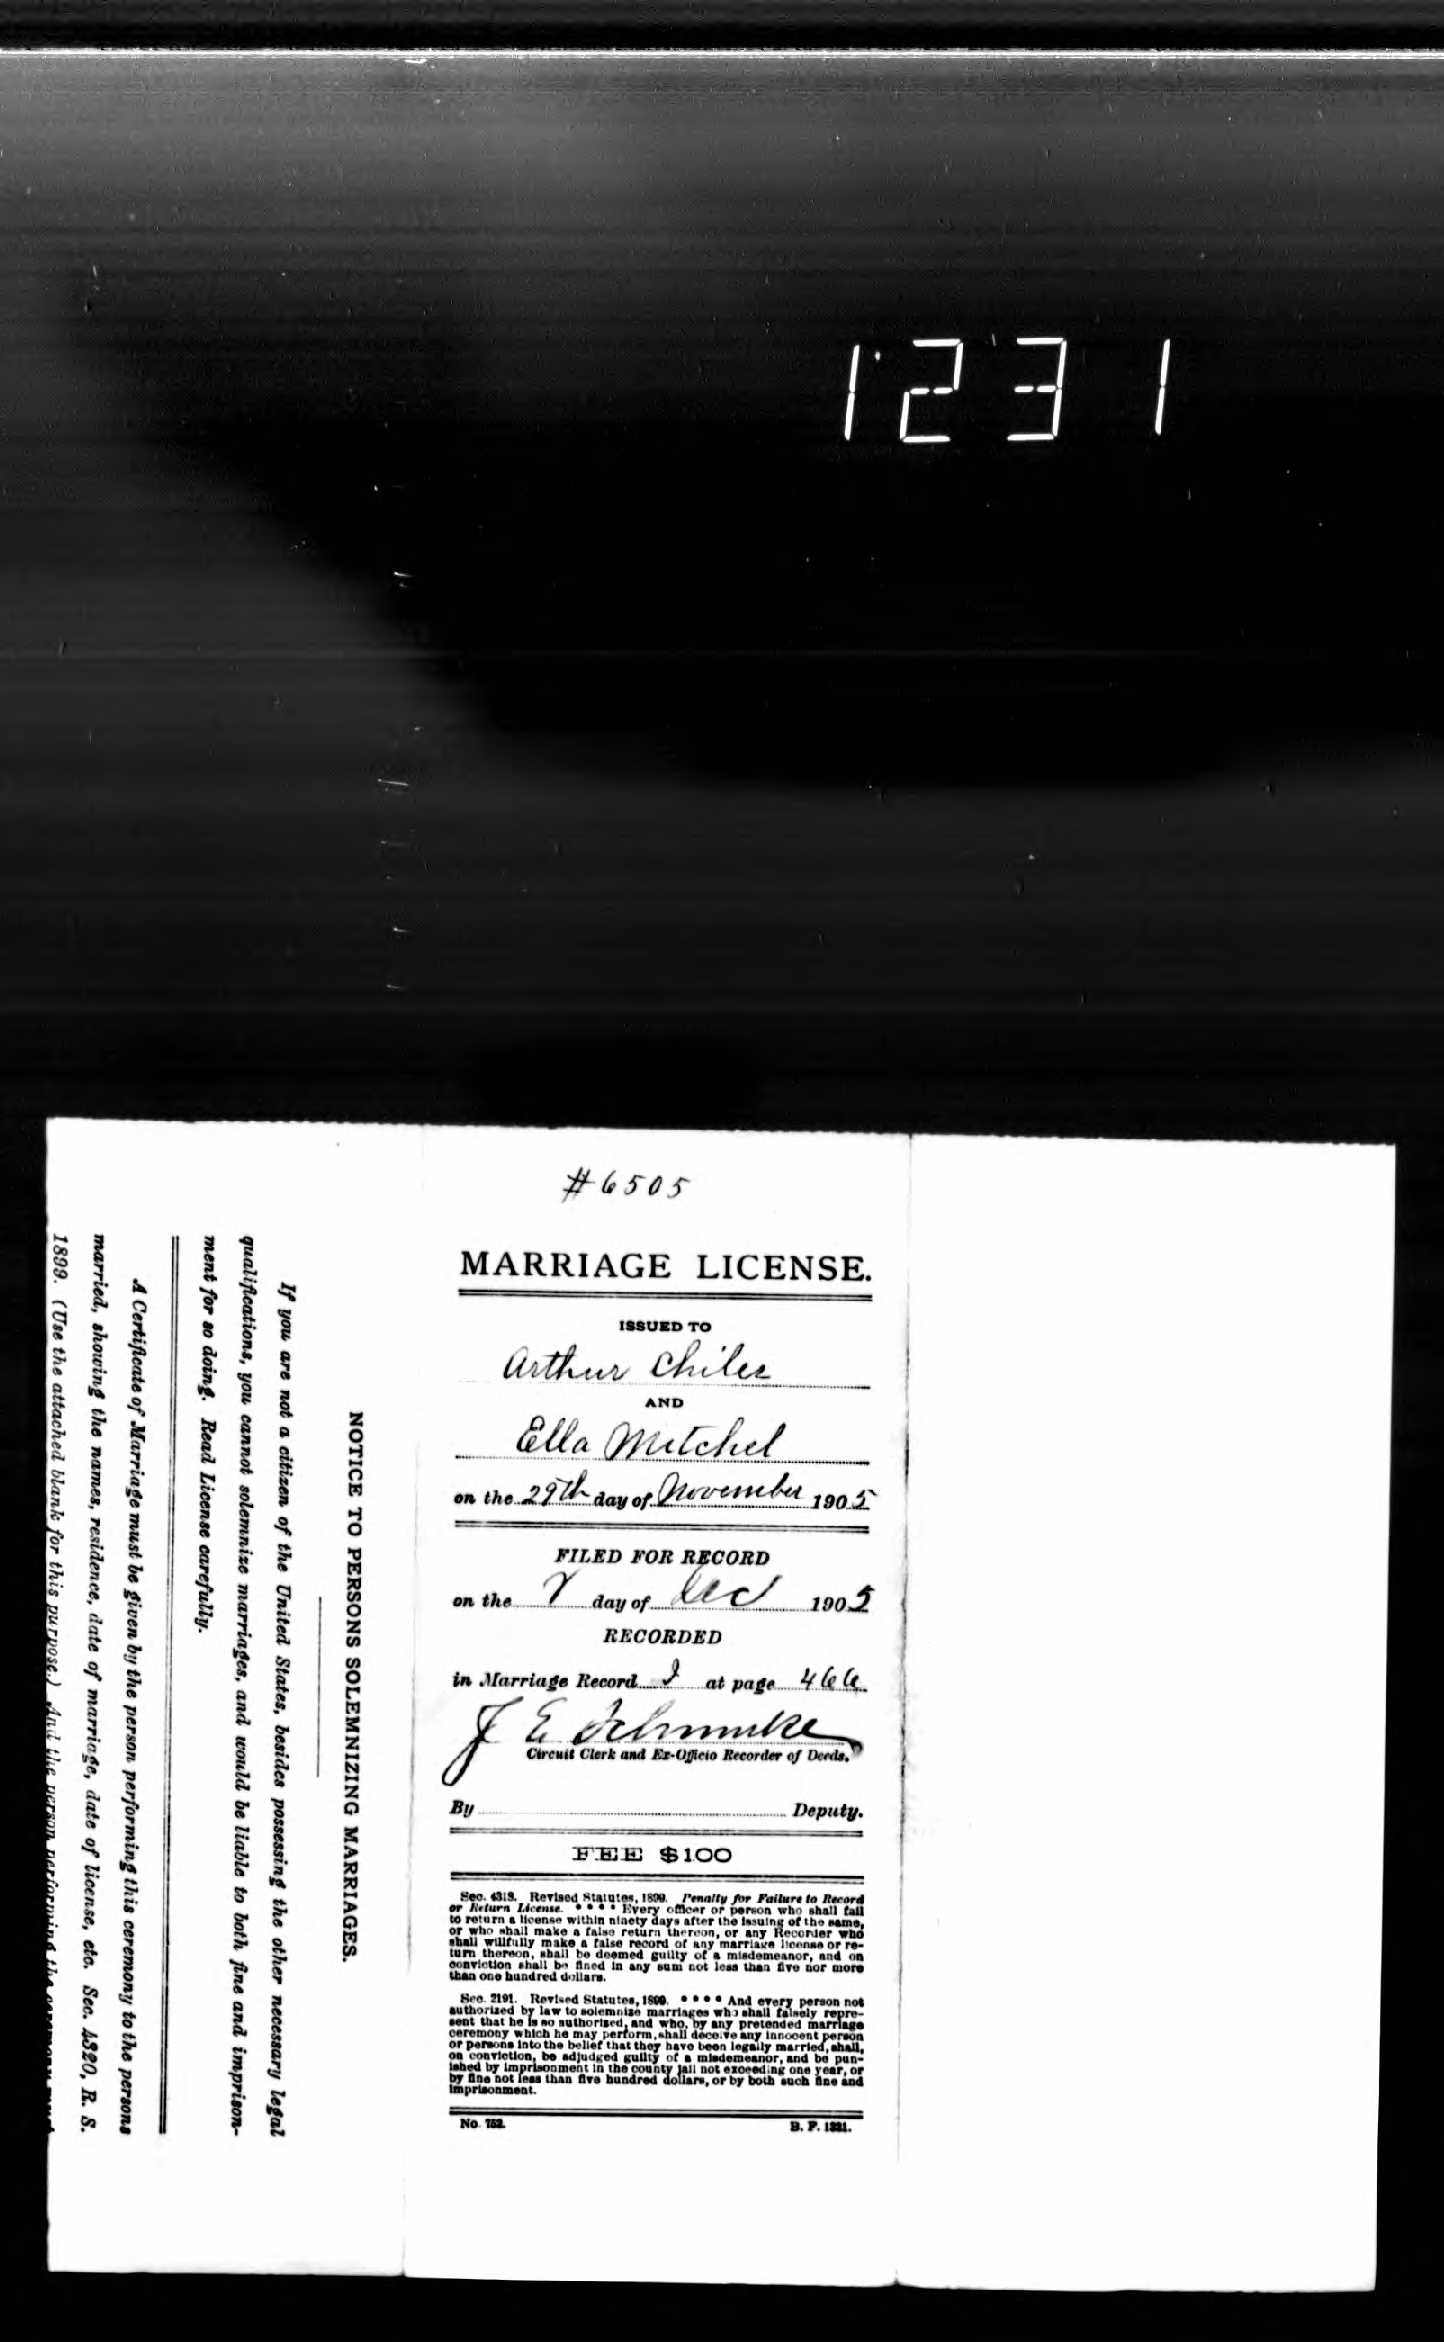 1231
#6505
MARRIAGE LICENSE.
ISSUED TO
Arthur Chiles
AND
Ella Mitchel
on the 29th day of November 1905
FILED FOR RECORD
on the day of Dec 1905
RECORDED
in Marriage Record at page 466
J E Schmuke
Circuit Clerk and Ex-Officio Recorder of Deeds.
By Deputy.
FEE $1.00
Sec. 4318. Revised Statutes, 1899. Penalty for Failure to Record
or Return License. * * * * Every officer or person who shall fail
to return a license within ninety days after the issuing of the same,
or who shall make a false return thereon, or any Recorder who
shall willfully make a false record of any marriage license or re-
turn thereon, shall be deemed guilty of a misdemeanor, and on
conviction shall be fined in any sum not less than five nor more
than one hundred dollars.
Sec. 2191. Revised Statutes, 1899. * * * * And every person not
authorized by law to solemnize marriages who shall falsely repre-
sent that he is so authorized, and who, by any pretended marriage
ceremony which he may perform, shall deceive any innocent person
or persons into the belief that they have been legally married, shall,
on conviction, be adjudged guilty of a misdemeanor, and be pun-
ished by imprisonment in the county jail not exceeding one year, or
by fine not less than five hundred dollars, or by both such fine and
imprisonment.
No. 752. B. P. 1221.
NOTICE TO PERSONS SOLEMNIZING MARRIAGES.
If you are not a citizen of the United States, besides possessing the other necessary legal
qualifications, you cannot solemnize marriages, and would be liable to both fine and imprison-
ment for so doing. Read License carefully.
A Certificate of Marriage must be given by the person performing this ceremony to the persons
married, showing the names, residence, date of marriage, date of license, etc. Sec. 4320, R. S.
1899. (Use the attached blank for this purpose.) And the person performing the ceremony must